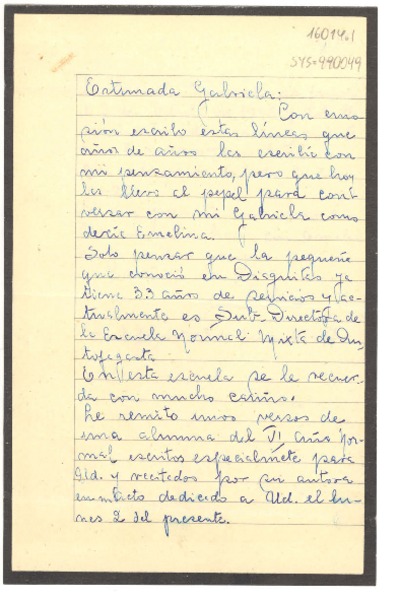 160141
SYS=990049
Estimada Gabriela:
Con emo
sión escribo estas líneas que
años de años las escribí con
mi pensamiento, pero que hoy
las llevo al papel para con
versar con mi Gabriela como
decía Emelina.
Solo pensar que la pequeña
que conoció en Diaguitas ya
tiene 33 años de servicios y ac-
tualmente es Sub. Directora de
la Escuela Normal Mixta de An-
tofagasta.
En esta escuela se le recuer-
da con mucho cariño.
Le remito unos versos de
una alumna del VI año nor-
mal escritos especialmete para
Ud. y recitados por su autora
en un acto dedicado a Ud. el lu-
nes 2 del presente.